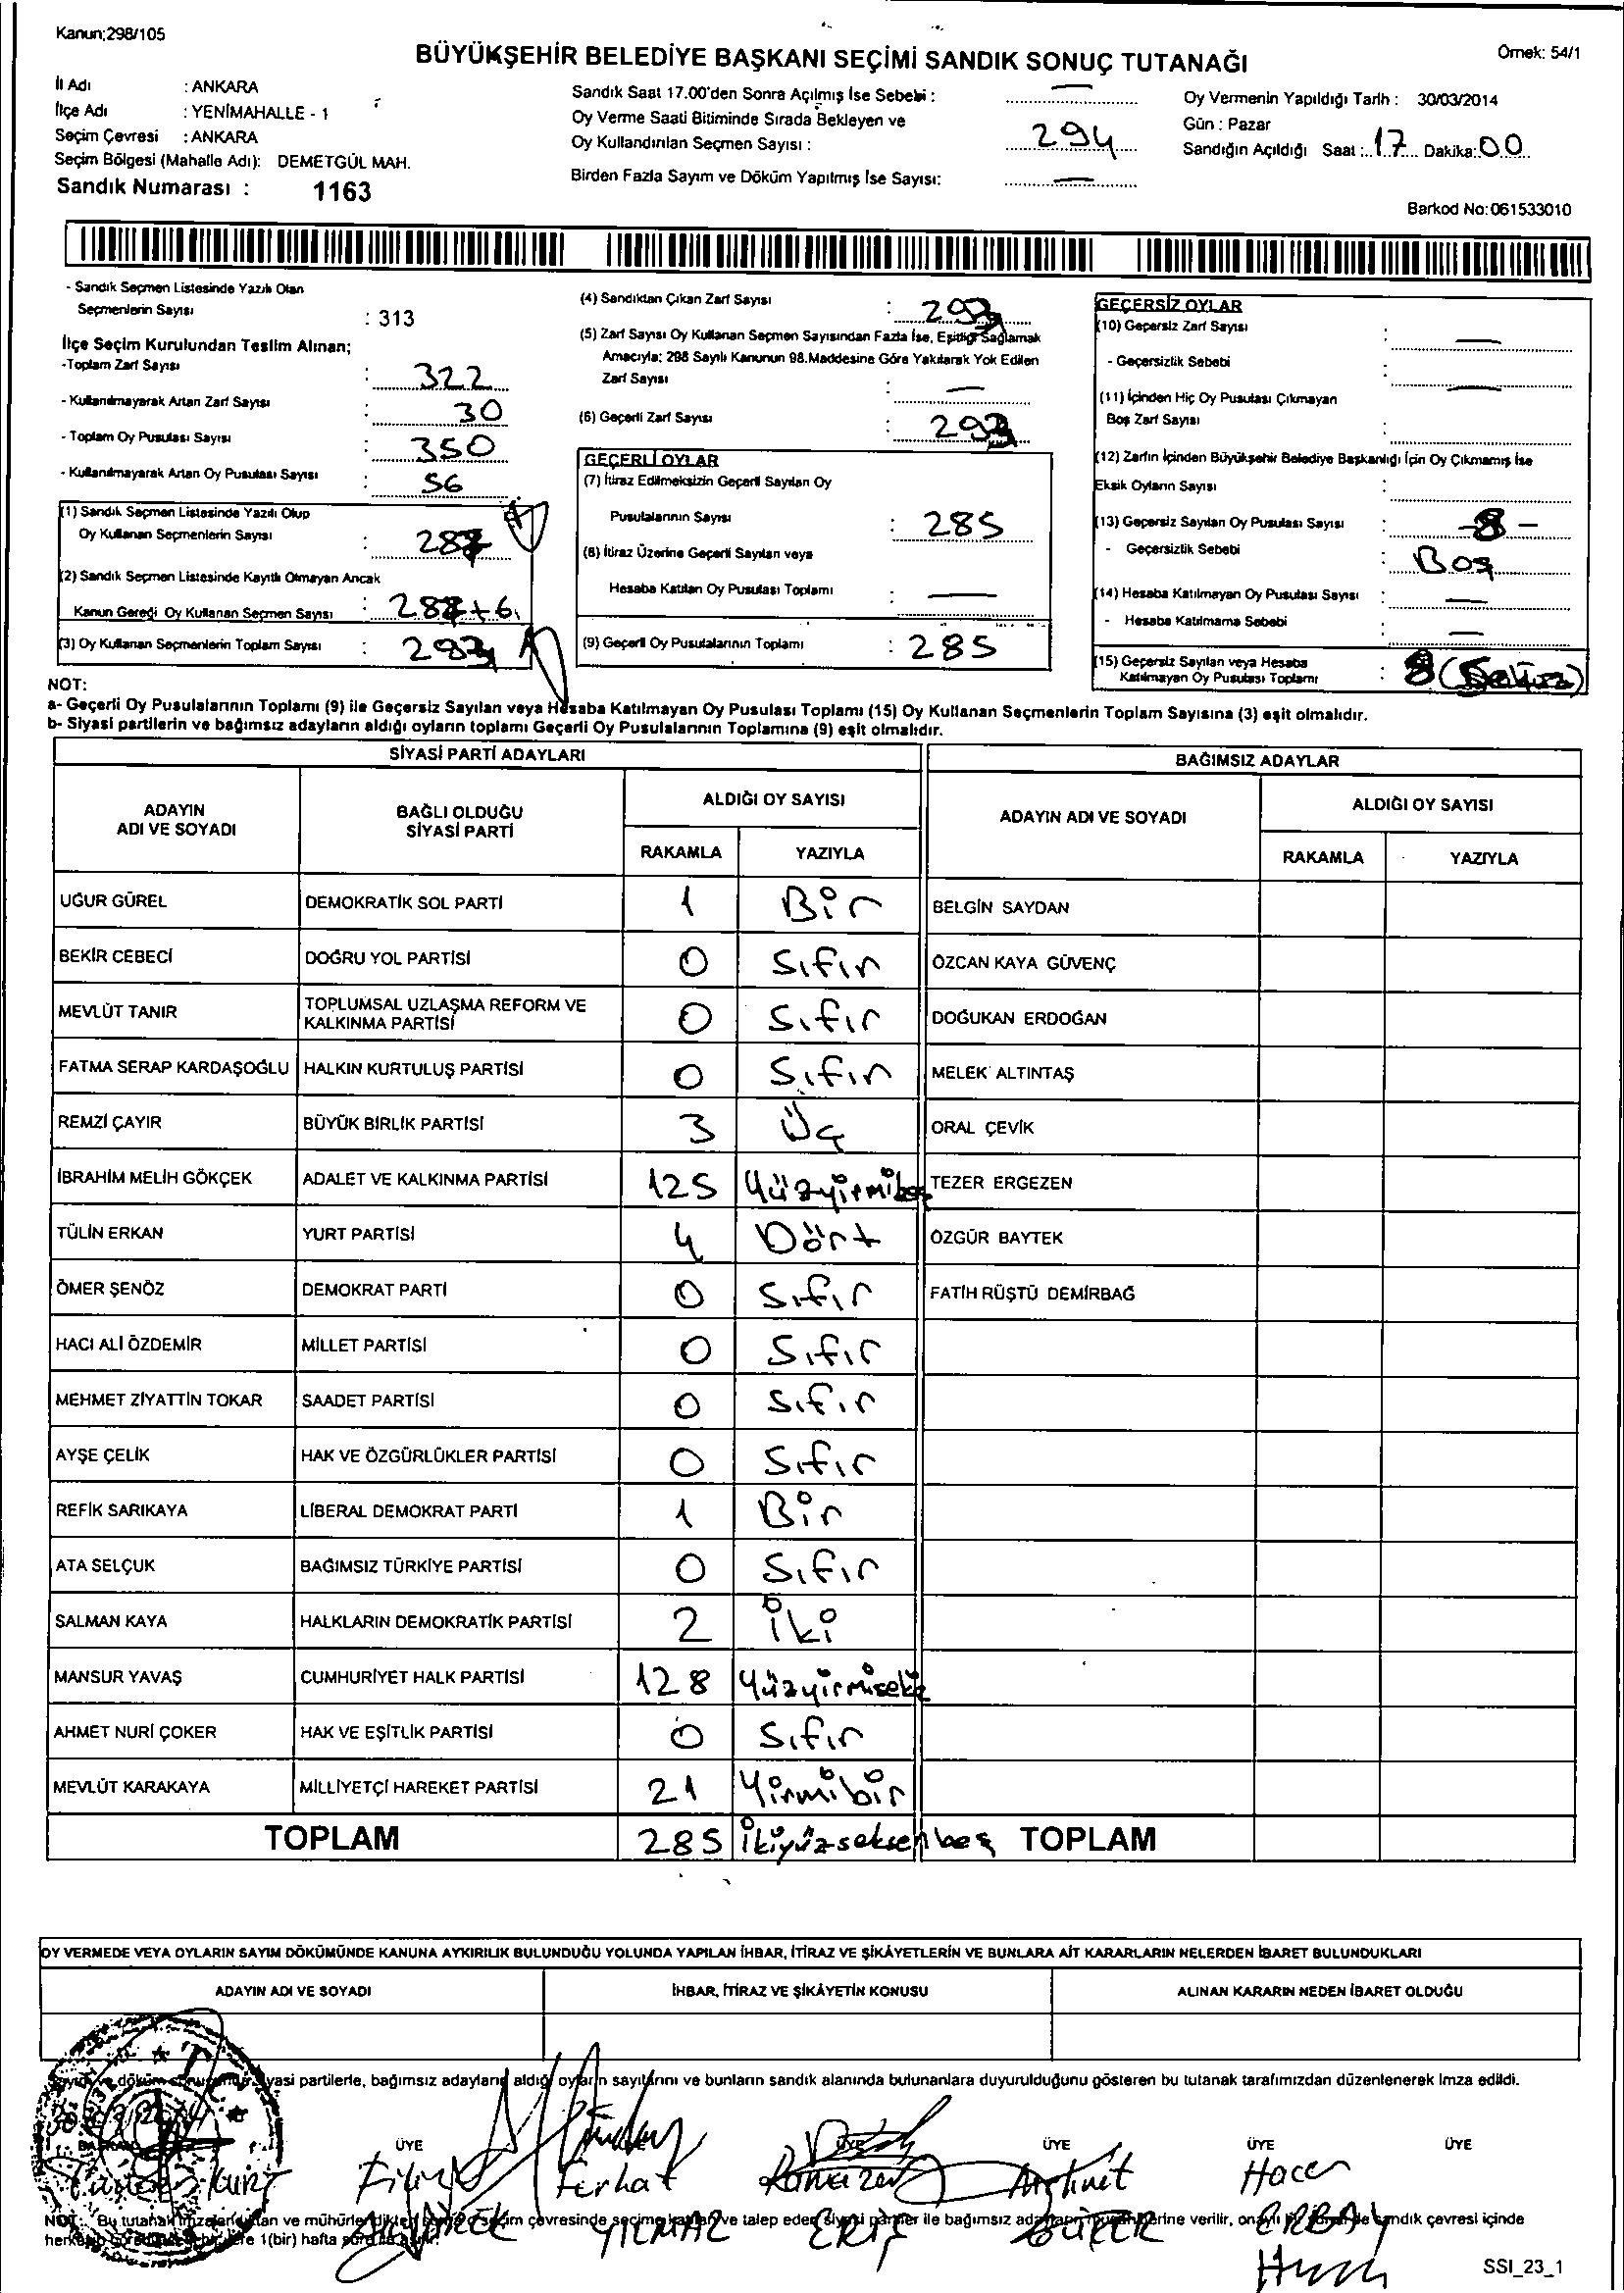 Kanun;298/105
BÜYÜKŞEHİR BELEDİYE BAŞKANI SEÇİMİ SANDIK SONUÇ TUTANAĞI
Örnek: 54/1
İl Adı : ANKARA
İlçe Adı : YENİMAHALLE - 1
Seçim Çevresi : ANKARA
Seçim Bölgesi (Mahalle Adı): DEMETGÜL MAH.
Sandık Numarası : 1163
Sandık Saat 17.00'den Sonra Açılmış İse Sebebi : —
Oy Verme Saati Bitiminde Sırada Bekleyen ve
Oy Kullandırılan Seçmen Sayısı : 294
Birden Fazla Sayım ve Döküm Yapılmış İse Sayısı: —
Oy Vermenin Yapıldığı Tarih : 30/03/2014
Gün : Pazar
Sandığın Açıldığı Saat : 17 Dakika: 00
Barkod No:061533010
- Sandık Seçmen Listesinde Yazılı Olan
Seçmenlerin Sayısı : 313
İlçe Seçim Kurulundan Teslim Alınan;
-Toplam Zarf Sayısı : 322
- Kullanılmayarak Artan Zarf Sayısı : 30
- Toplam Oy Pusulası Sayısı : 350
- Kullanılmayarak Artan Oy Pusulası Sayısı : 56
(1) Sandık Seçmen Listesinde Yazılı Olup
Oy Kullanan Seçmenlerin Sayısı :
(2) Sandık Seçmen Listesinde Kayıtlı Olmayan Ancak
Kanun Gereği Oy Kullanan Seçmen Sayısı :
(3) Oy Kullanan Seçmenlerin Toplam Sayısı : 293
(4) Sandıktan Çıkan Zarf Sayısı : 293
(5) Zarf Sayısı Oy Kullanan Seçmen Sayısından Fazla İse, Eşitliği Sağlamak
Amacıyla; 298 Sayılı Kanunun 98.Maddesine Göre Yakılarak Yok Edilen
Zarf Sayısı : —
(6) Geçerli Zarf Sayısı : 293
GEÇERLİ OYLAR
(7) İtiraz Edilmeksizin Geçerli Sayılan Oy
Pusulalarının Sayısı : 285
(8) İtiraz Üzerine Geçerli Sayılan veya
Hesaba Katılan Oy Pusulası Toplamı : —
(9) Geçerli Oy Pusulalarının Toplamı : 285
GEÇERSİZ OYLAR
(10) Geçersiz Zarf Sayısı : —
- Geçersizlik Sebebi : —
(11) İçinden Hiç Oy Pusulası Çıkmayan
Boş Zarf Sayısı :
(12) Zarfın İçinden Büyükşehir Belediye Başkanlığı İçin Oy Çıkmamış İse
Eksik Oyların Sayısı :
(13) Geçersiz Sayılan Oy Pusulası Sayısı : -8-
- Geçersizlik Sebebi : Boş
(14) Hesaba Katılmayan Oy Pusulası Sayısı : —
- Hesaba Katılmama Sebebi : —
(15) Geçersiz Sayılan veya Hesaba
Katılmayan Oy Pusulası Toplamı : 8 (Sekiz)
NOT:
a- Geçerli Oy Pusulalarının Toplamı (9) ile Geçersiz Sayılan veya Hesaba Katılmayan Oy Pusulası Toplamı (15) Oy Kullanan Seçmenlerin Toplam Sayısına (3) eşit olmalıdır.
b- Siyasi partilerin ve bağımsız adayların aldığı oyların toplamı Geçerli Oy Pusulalarının Toplamına (9) eşit olmalıdır.
SİYASİ PARTİ ADAYLARI BAĞIMSIZ ADAYLAR
ADAYIN ADI VE SOYADI BAĞLI OLDUĞU SİYASİ PARTİ ALDIĞI OY SAYISI ADAYIN ADI VE SOYADI ALDIĞI OY SAYISI
RAKAMLA YAZIYLA RAKAMLA YAZIYLA
UĞUR GÜREL DEMOKRATİK SOL PARTİ 1 Bir BELGİN SAYDAN
BEKİR CEBECİ DOĞRU YOL PARTİSİ 0 Sıfır ÖZCAN KAYA GÜVENÇ
MEVLÜT TANIR TOPLUMSAL UZLAŞMA REFORM VE KALKINMA PARTİSİ 0 Sıfır DOĞUKAN ERDOĞAN
FATMA SERAP KARDAŞOĞLU HALKIN KURTULUŞ PARTİSİ 0 Sıfır MELEK ALTINTAŞ
REMZİ ÇAYIR BÜYÜK BİRLİK PARTİSİ 3 Üç ORAL ÇEVİK
İBRAHİM MELİH GÖKÇEK ADALET VE KALKINMA PARTİSİ 125 Yüzyirmibeş TEZER ERGEZEN
TÜLİN ERKAN YURT PARTİSİ 4 Dört ÖZGÜR BAYTEK
ÖMER ŞENÖZ DEMOKRAT PARTİ 0 Sıfır FATİH RÜŞTÜ DEMİRBAĞ
HACI ALİ ÖZDEMİR MİLLET PARTİSİ 0 Sıfır
MEHMET ZİYATTİN TOKAR SAADET PARTİSİ 0 Sıfır
AYŞE ÇELİK HAK VE ÖZGÜRLÜKLER PARTİSİ 0 Sıfır
REFİK SARIKAYA LİBERAL DEMOKRAT PARTİ 1 Bir
ATA SELÇUK BAĞIMSIZ TÜRKİYE PARTİSİ 0 Sıfır
SALMAN KAYA HALKLARIN DEMOKRATİK PARTİSİ 2 İki
MANSUR YAVAŞ CUMHURİYET HALK PARTİSİ 128 Yüzyirmisekiz
AHMET NURİ ÇOKER HAK VE EŞİTLİK PARTİSİ 0 Sıfır
MEVLÜT KARAKAYA MİLLİYETÇİ HAREKET PARTİSİ 21 Yirmibir
TOPLAM 285 İkiyüzseksenbeş TOPLAM
OY VERMEDE VEYA OYLARIN SAYIM DÖKÜMÜNDE KANUNA AYKIRILIK BULUNDUĞU YOLUNDA YAPILAN İHBAR, İTİRAZ VE ŞİKÂYETLERİN VE BUNLARA AİT KARARLARIN NELERDEN İBARET BULUNDUKLARI
ADAYIN ADI VE SOYADI İHBAR, İTİRAZ VE ŞİKÂYETİN KONUSU ALINAN KARARIN NEDEN İBARET OLDUĞU
döküm siyasi partilerle, bağımsız adayların aldığı oyların sayılarını ve bunların sandık alanında bulunanlara duyurulduğunu gösteren bu tutanak tarafımızdan düzenlenerek imza edildi.
ÜYE ÜYE ÜYE ÜYE ÜYE
Kurt Ferhat Ramazan Ahmet Hacer
YILMAZ ERİŞ ERBAY
NOT: Bu tutanak ve seçim çevresinde seçime katılan ve talep eden siyasi partiler ile bağımsız verilir, sandık çevresi içinde
1(bir) hafta
SSI_23_1